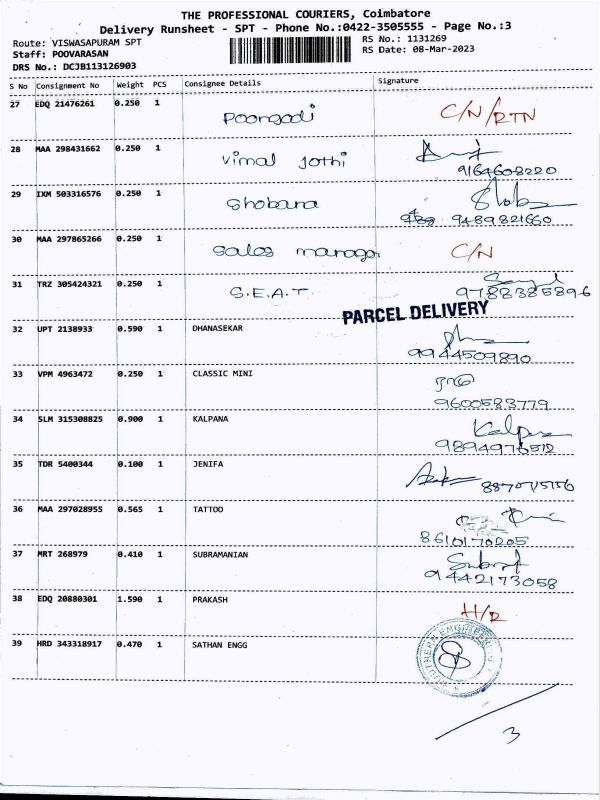 THE PROFESSIONAL COURIERS, Coimbatore
Delivery Runsheet - SPT - Phone No.:0422-3505555 - Page No.:3
Route: VISWASAPURAM SPT RS No.: 1131269
Staff: POOVARASAN RS Date: 08-Mar-2023
DRS No.: DCJB113126903
S No Consignment No Weight PCS Consignee Details Signature
27 EDQ 21476261 0.250 1 Poongodi C/N/RTN
28 MAA 298431662 0.250 1 Vimal Jothi
9164608220
29 IXM 503316576 0.250 1 Shobana
9489821660
30 MAA 297865266 0.250 1 Sales manager C/N
31 TRZ 305424321 0.250 1 S.E.A.T.
9788385896
PARCEL DELIVERY
32 UPT 2138933 0.590 1 DHANASEKAR
9944509890
33 VPM 4963472 0.250 1 CLASSIC MINI
9600583779
34 SLM 315308825 0.900 1 KALPANA Kalpana
9894976512
35 TDR 5400344 0.100 1 JENIFA
8870715156
36 MAA 297028955 0.565 1 TATTOO
8610170205
37 MRT 268979 0.410 1 SUBRAMANIAN
9442173058
38 EDQ 20880301 1.590 1 PRAKASH H/R
39 HRD 343318917 0.470 1 SATHAN ENGG
3